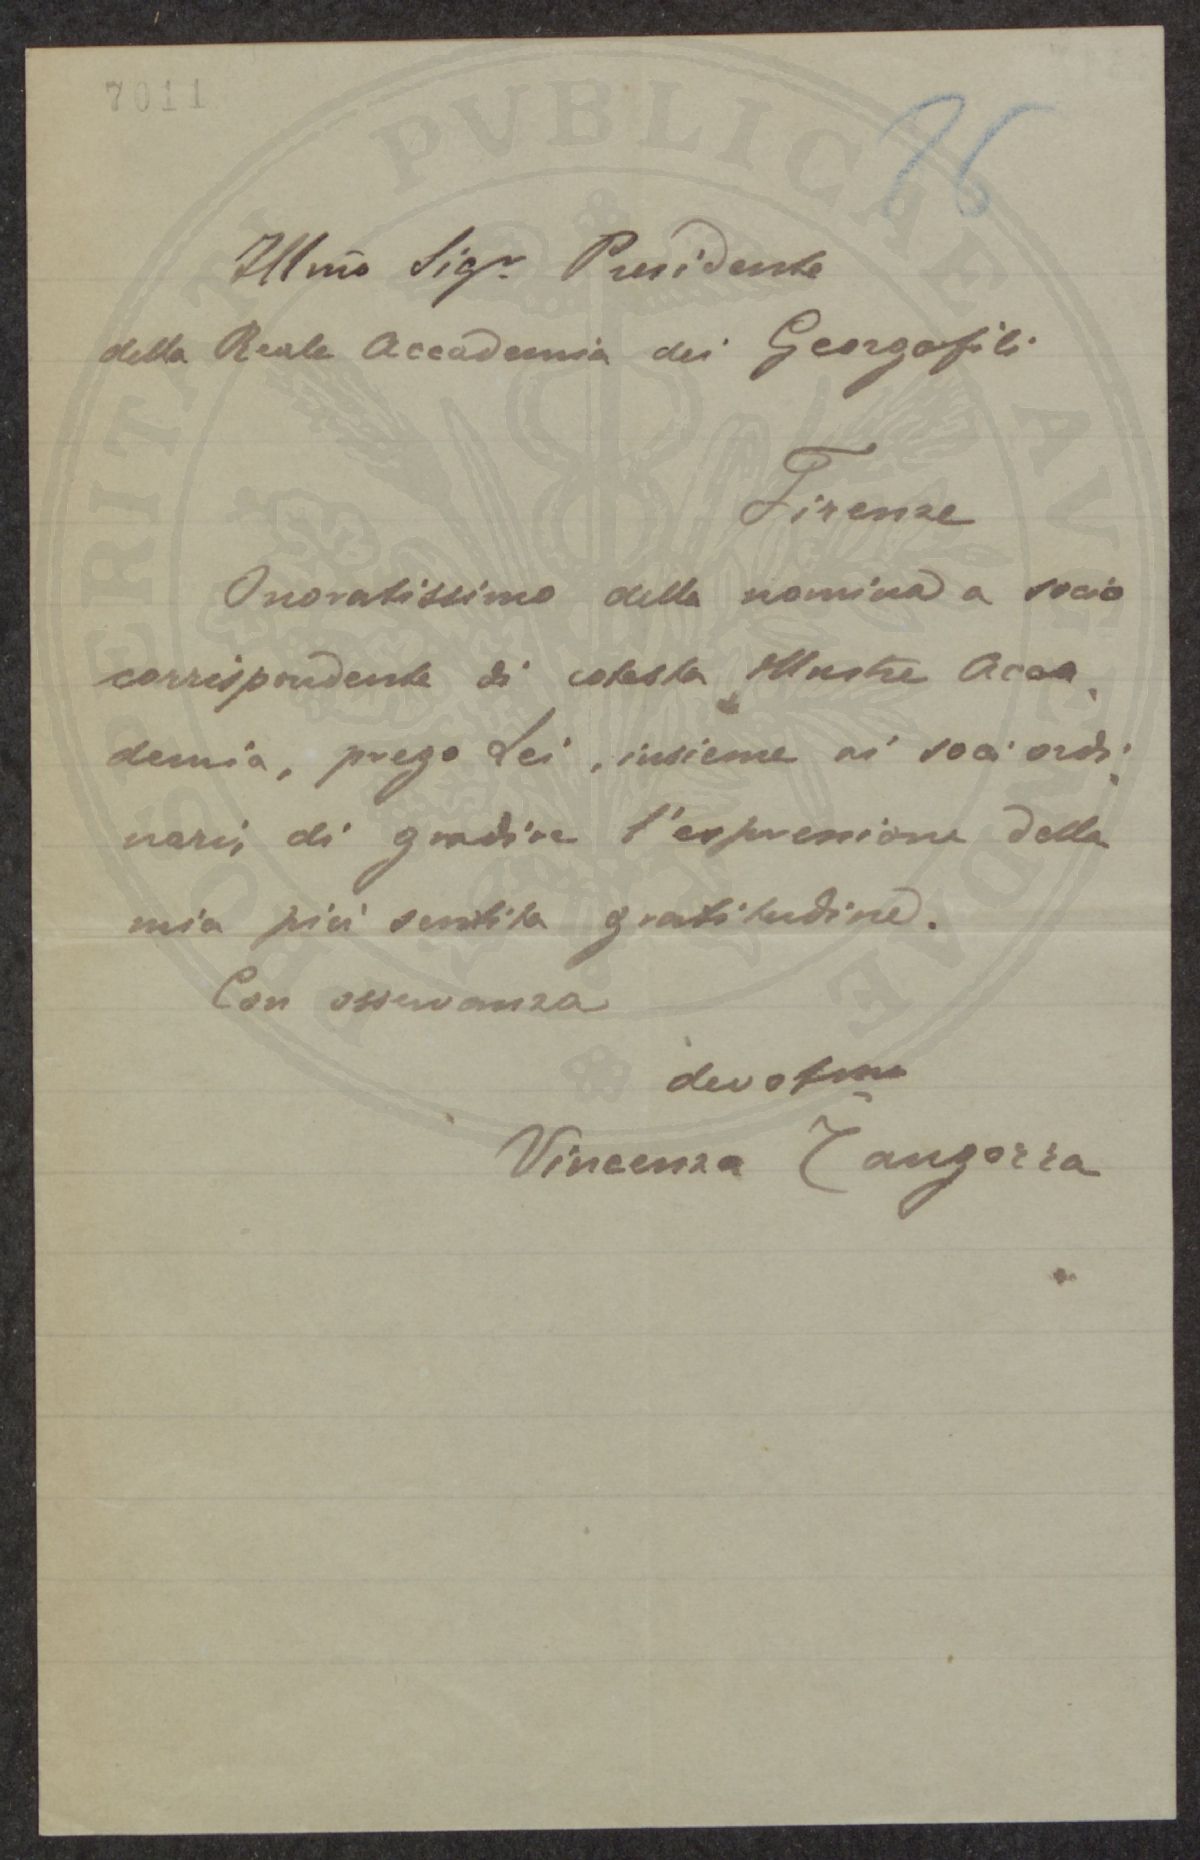 7011
76
Illmo Sigr. Presidente
della Reale Accademia dei Georgofili
Firenze
Onoratissimo della nomina a socio
corrispondente di cotesta illustre Acca-
demia, prego Lei, insieme ai soci ordi-
narii, di gradire l'espressione della
mia più sentita gratitudine.
Con osservanza
devotmo
Vincenzo Tangorra
PROSPERITATI PVBLICAE AVGENDAE